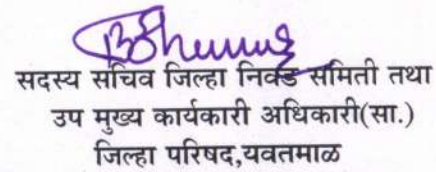 सदस्य सचिव जिल्हा निवड समिती तथा
उप मुख्य कार्यकारी अधिकारी(सा.)
जिल्हा परिषद,यवतमाळ